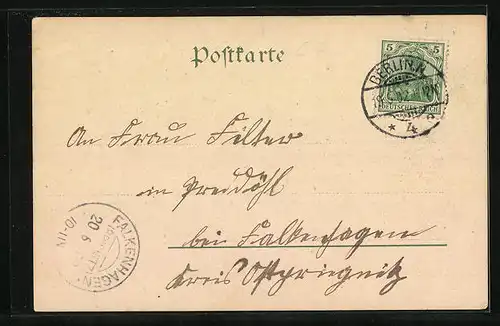 Postkarte
5 5
BERLIN. N.
DEUTSCHES REICH
* 4 *
An Frau Filter
in Preddöhl
bei Falkenhagen
Kreis Ostpriegnitz
FALKENHAGEN
20 6
10-11V